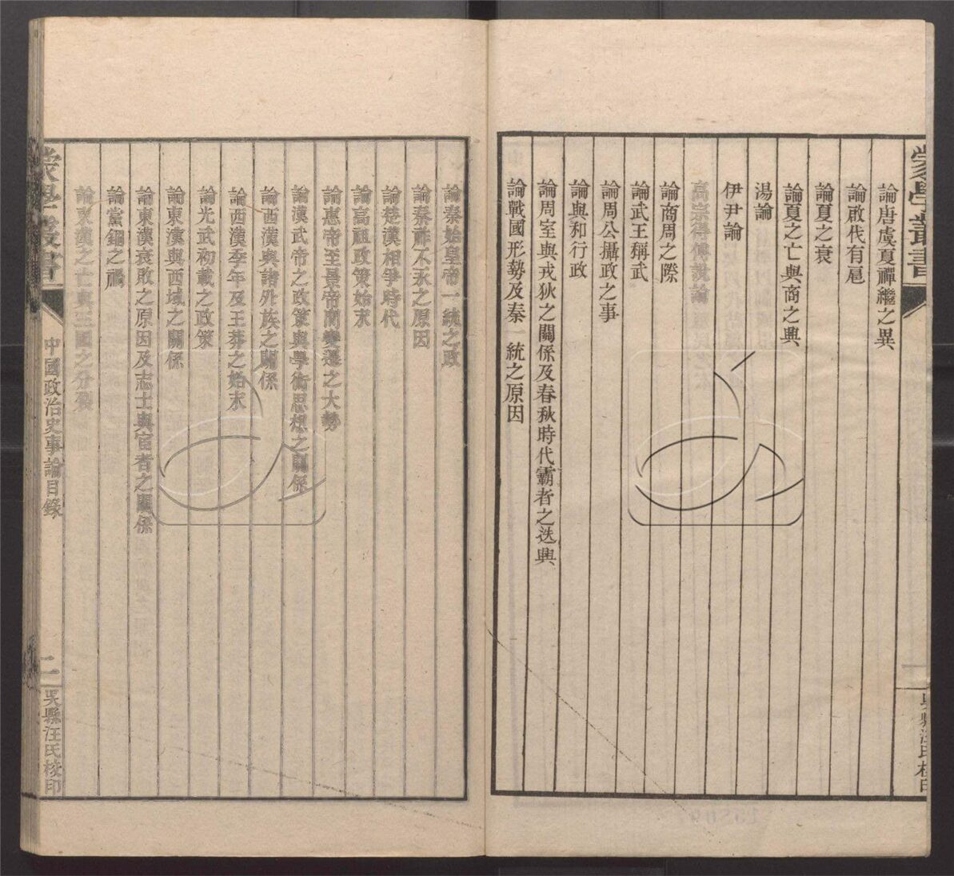 蒙學叢書
論唐虞夏禪繼之異
論啟代有扈
論夏之衰
論夏之亡與商之興
湯論
伊尹論
高宗得傅說論
論商周之際
論武王稱武
論周公攝政之事
論與和行政
論周室與戎狄之關係及春秋時代霸者之迭興
論戰國形勢及秦一統之原因
吳縣汪氏校印
論秦始皇帝一統之政
論秦祚不永之原因
論楚漢相爭時代
論高祖政策始末
論惠帝至景帝間變遷之大勢
論漢武帝之政策與學術思想之關係
論西漢與諸外族之關係
論西漢季年及王莽之始末
論光武初載之政策
論東漢與西域之關係
論東漢衰敗之原因及志士與宦者之關係
論黨錮之禍
論東漢之亡與三國之分裂
蒙學叢書
中國政治史事論目錄
二
吳縣汪氏校印